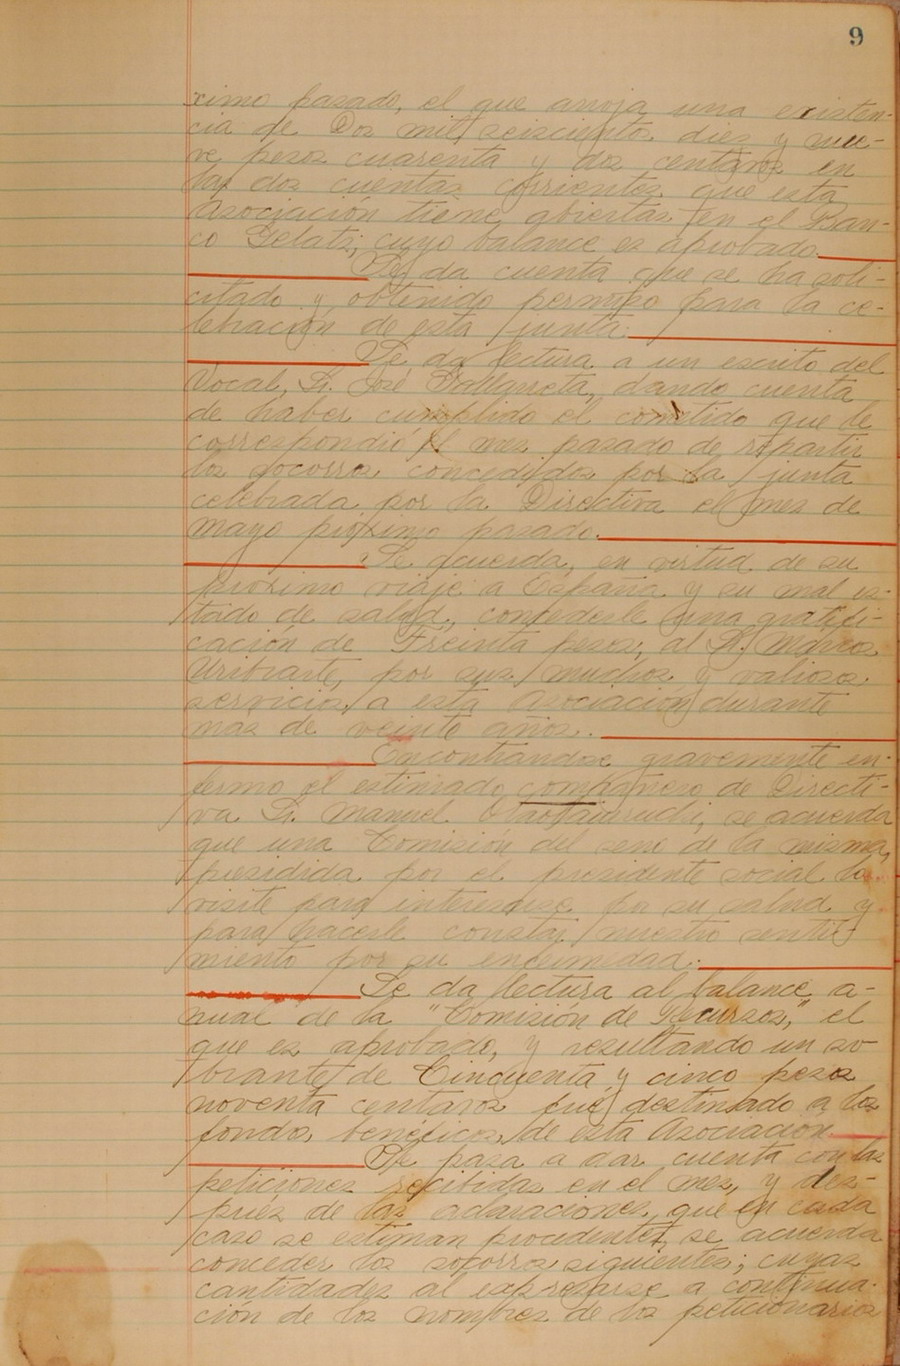 9
ximo pasado, el que arroja una existen-
cia de Dos mil seiscientos diez y nue-
ve pesos cuarenta y dos centavos en
las dos cuentas corrientes que esta
Asociación tiene abiertas en el Ban-
co Gelats, cuyo balance es aprobado.
Se da cuenta que se ha soli-
citado y obtenido permiso para la ce-
lebración de esta junta.
Se da lectura a un escrito del
Vocal, Sr. José dando cuenta
de haber cumplido el cometido que le
correspondió el mes pasado de repartir
los socorros concedidos por la junta
celebrada por la Directiva el mes de
Mayo próximo pasado.
Se acuerda, en virtud de su
proximo viaje a España y su mal es-
tado de salud, concederle una gratifi-
cación de Treinta pesos, al Sr. Marcos
Uribarte, por sus muchos y valiosos
servicios a esta Asociación durante
mas de veinte años.
Encontrandose gravemente en-
fermo el estimado compañero de Directi-
va Sr. Manuel se acuerda
que una Comisión del seno de la misma,
presidida por el presidente social lo
visite para interesarse por su salud y
para hacerle constar nuestro senti-
miento por su enfermedad.
Se da lectura al balance a-
nual de la "Comisión de Recursos," el
que es aprobado, y resultando un so
brante de Cincuenta y cinco pesos
noventa centavos fue destinado a los
fondos benéficos de esta Asociación
Se pasa a dar cuenta con las
peticiones recibidas en el mes, y des-
pues de las aclaraciones, que en cada
caso se estiman procedentes, se acuerda
conceder los socorros siguientes; cuyas
cantidades al expresarse a continua-
ción de los nombres de los peticionarios